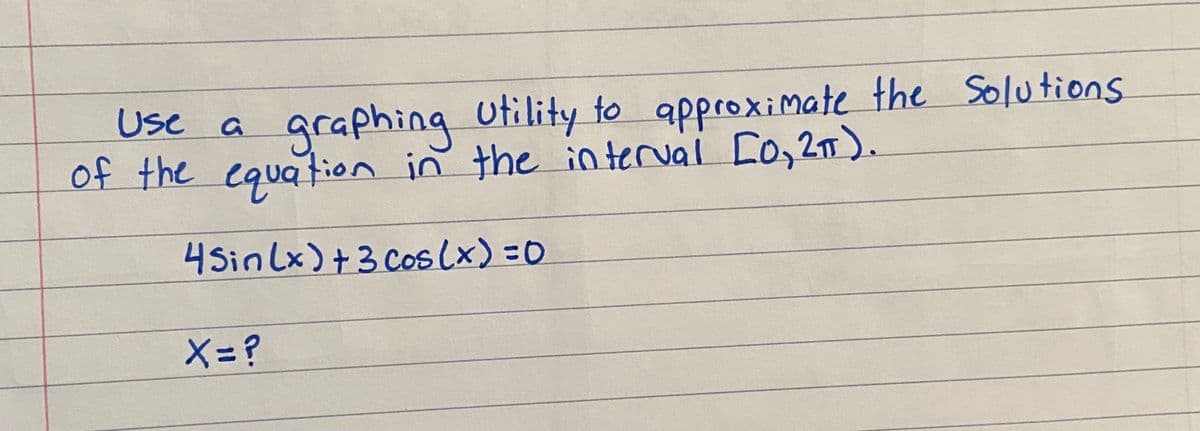 Use a graphing Utility to approximate the Solutions
of the equation in the interval [0,2π).
4Sin(x)+3 Cos(x)=0
X=?